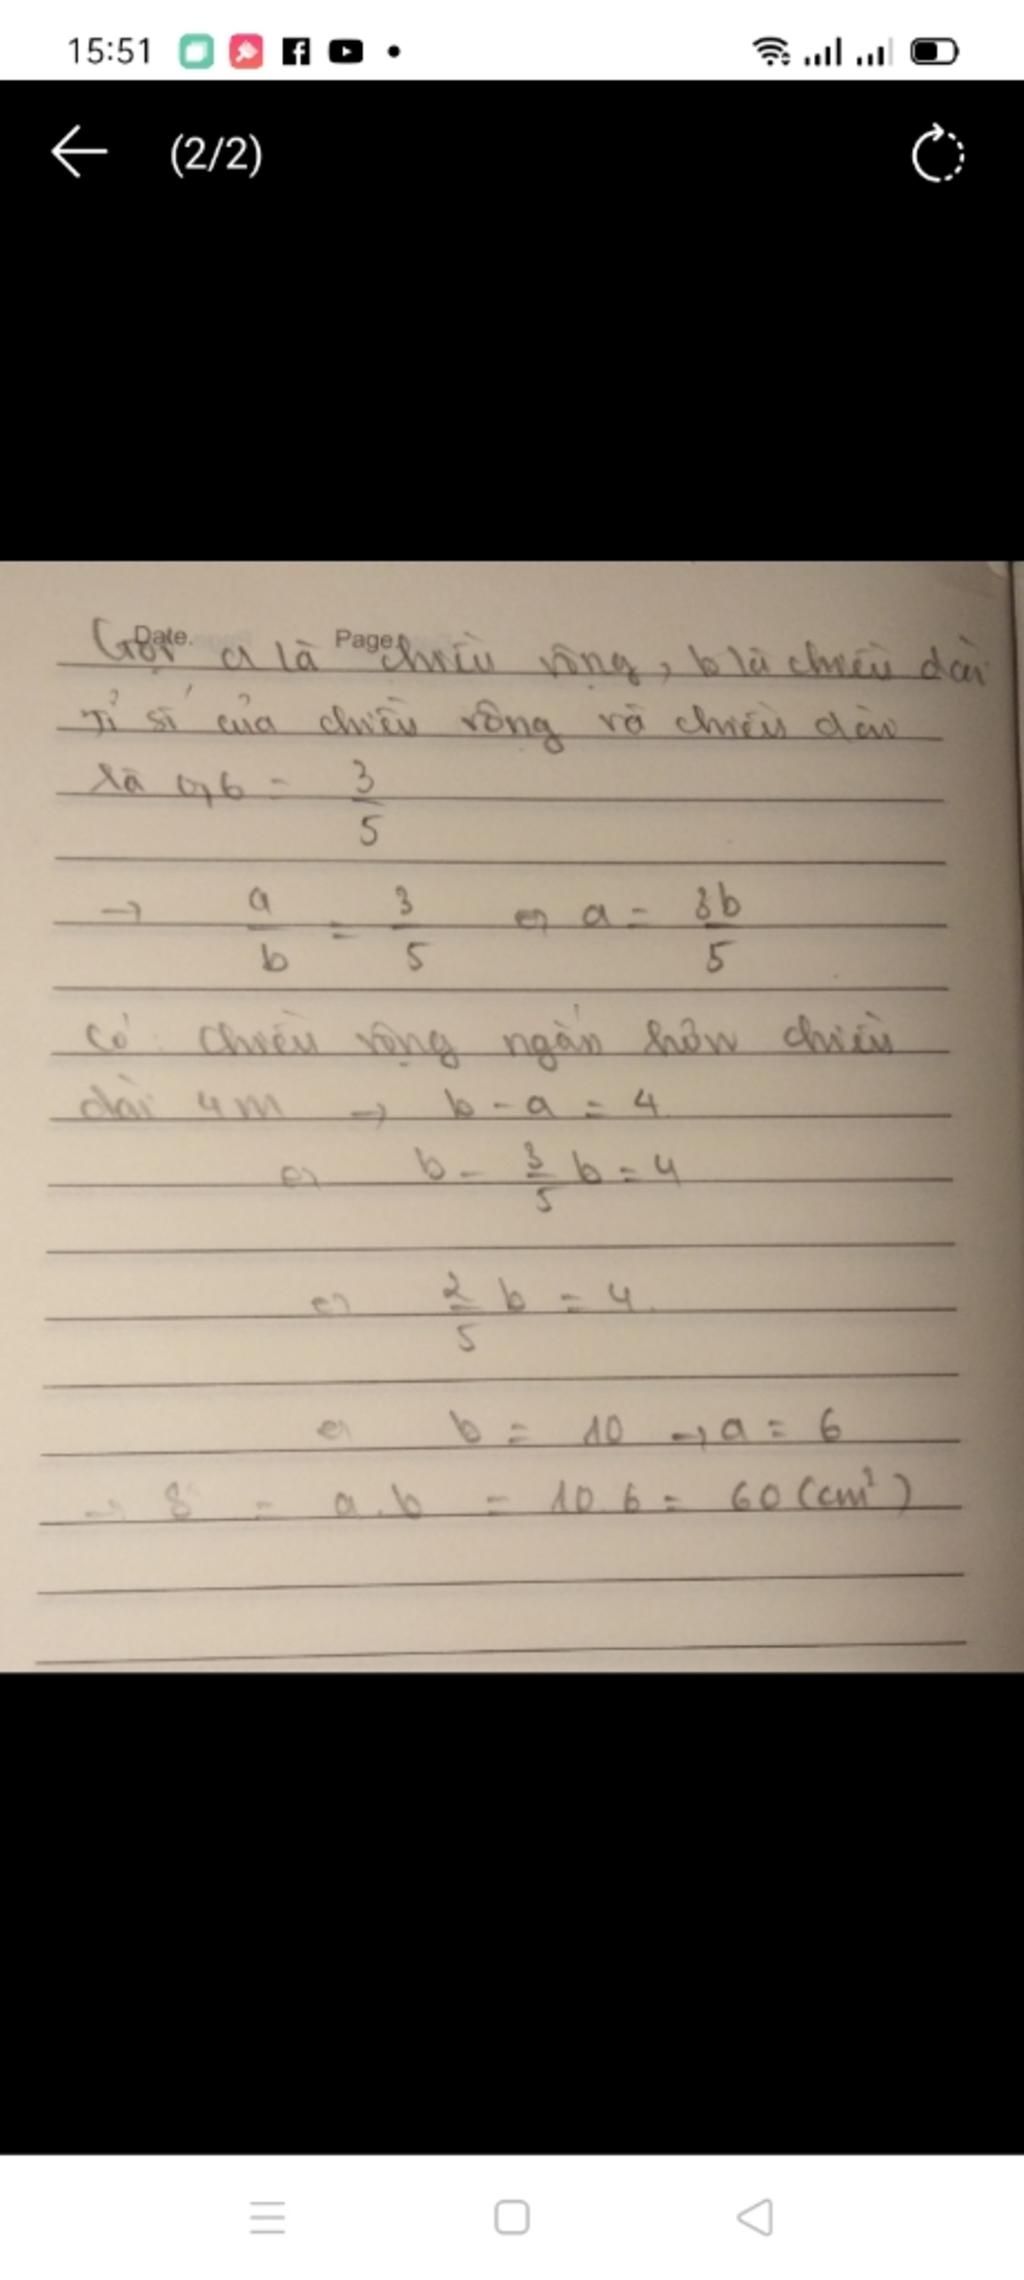 15:51
(2/2)
Date. Page
Gọi a là chiều rộng, b là chiều dài
Tỉ số của chiều rộng và chiều dài
là 0,6 = 3/5
→ a/b = 3/5 ⇔ a = 3b/5
Có: chiều rộng ngắn hơn chiều
dài 4m → b - a = 4
⇔ b - 3/5 b = 4
⇔ 2/5 b = 4
⇔ b = 10 → a = 6
→ S = a.b = 10.6 = 60 (cm²)